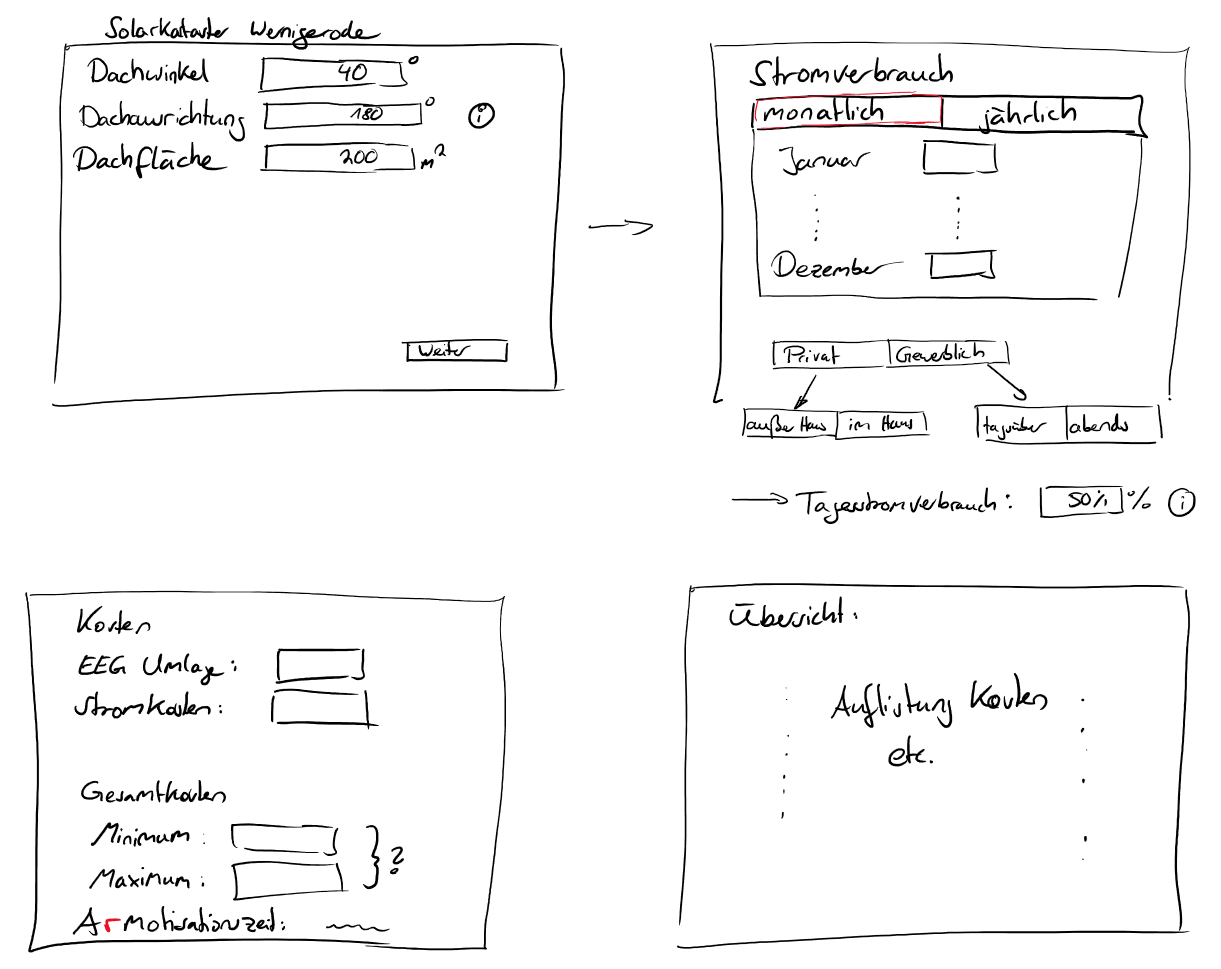 Solarkataster Wernigerode
Dachwinkel 40 °
Dachausrichtung 180 ° i
Dachfläche 200 m²
Weiter
Stromverbrauch
monatlich jährlich
Januar
Dezember
Privat Gewerblich
außer Haus im Haus tagsüber abends
Tagesstromverbrauch: 50% % i
Kosten
EEG Umlage:
Stromkosten:
Gesamtkosten
Minimum:
Maximum: ?
Armotisationszeit:
Übersicht:
Auflistung Kosten
etc.